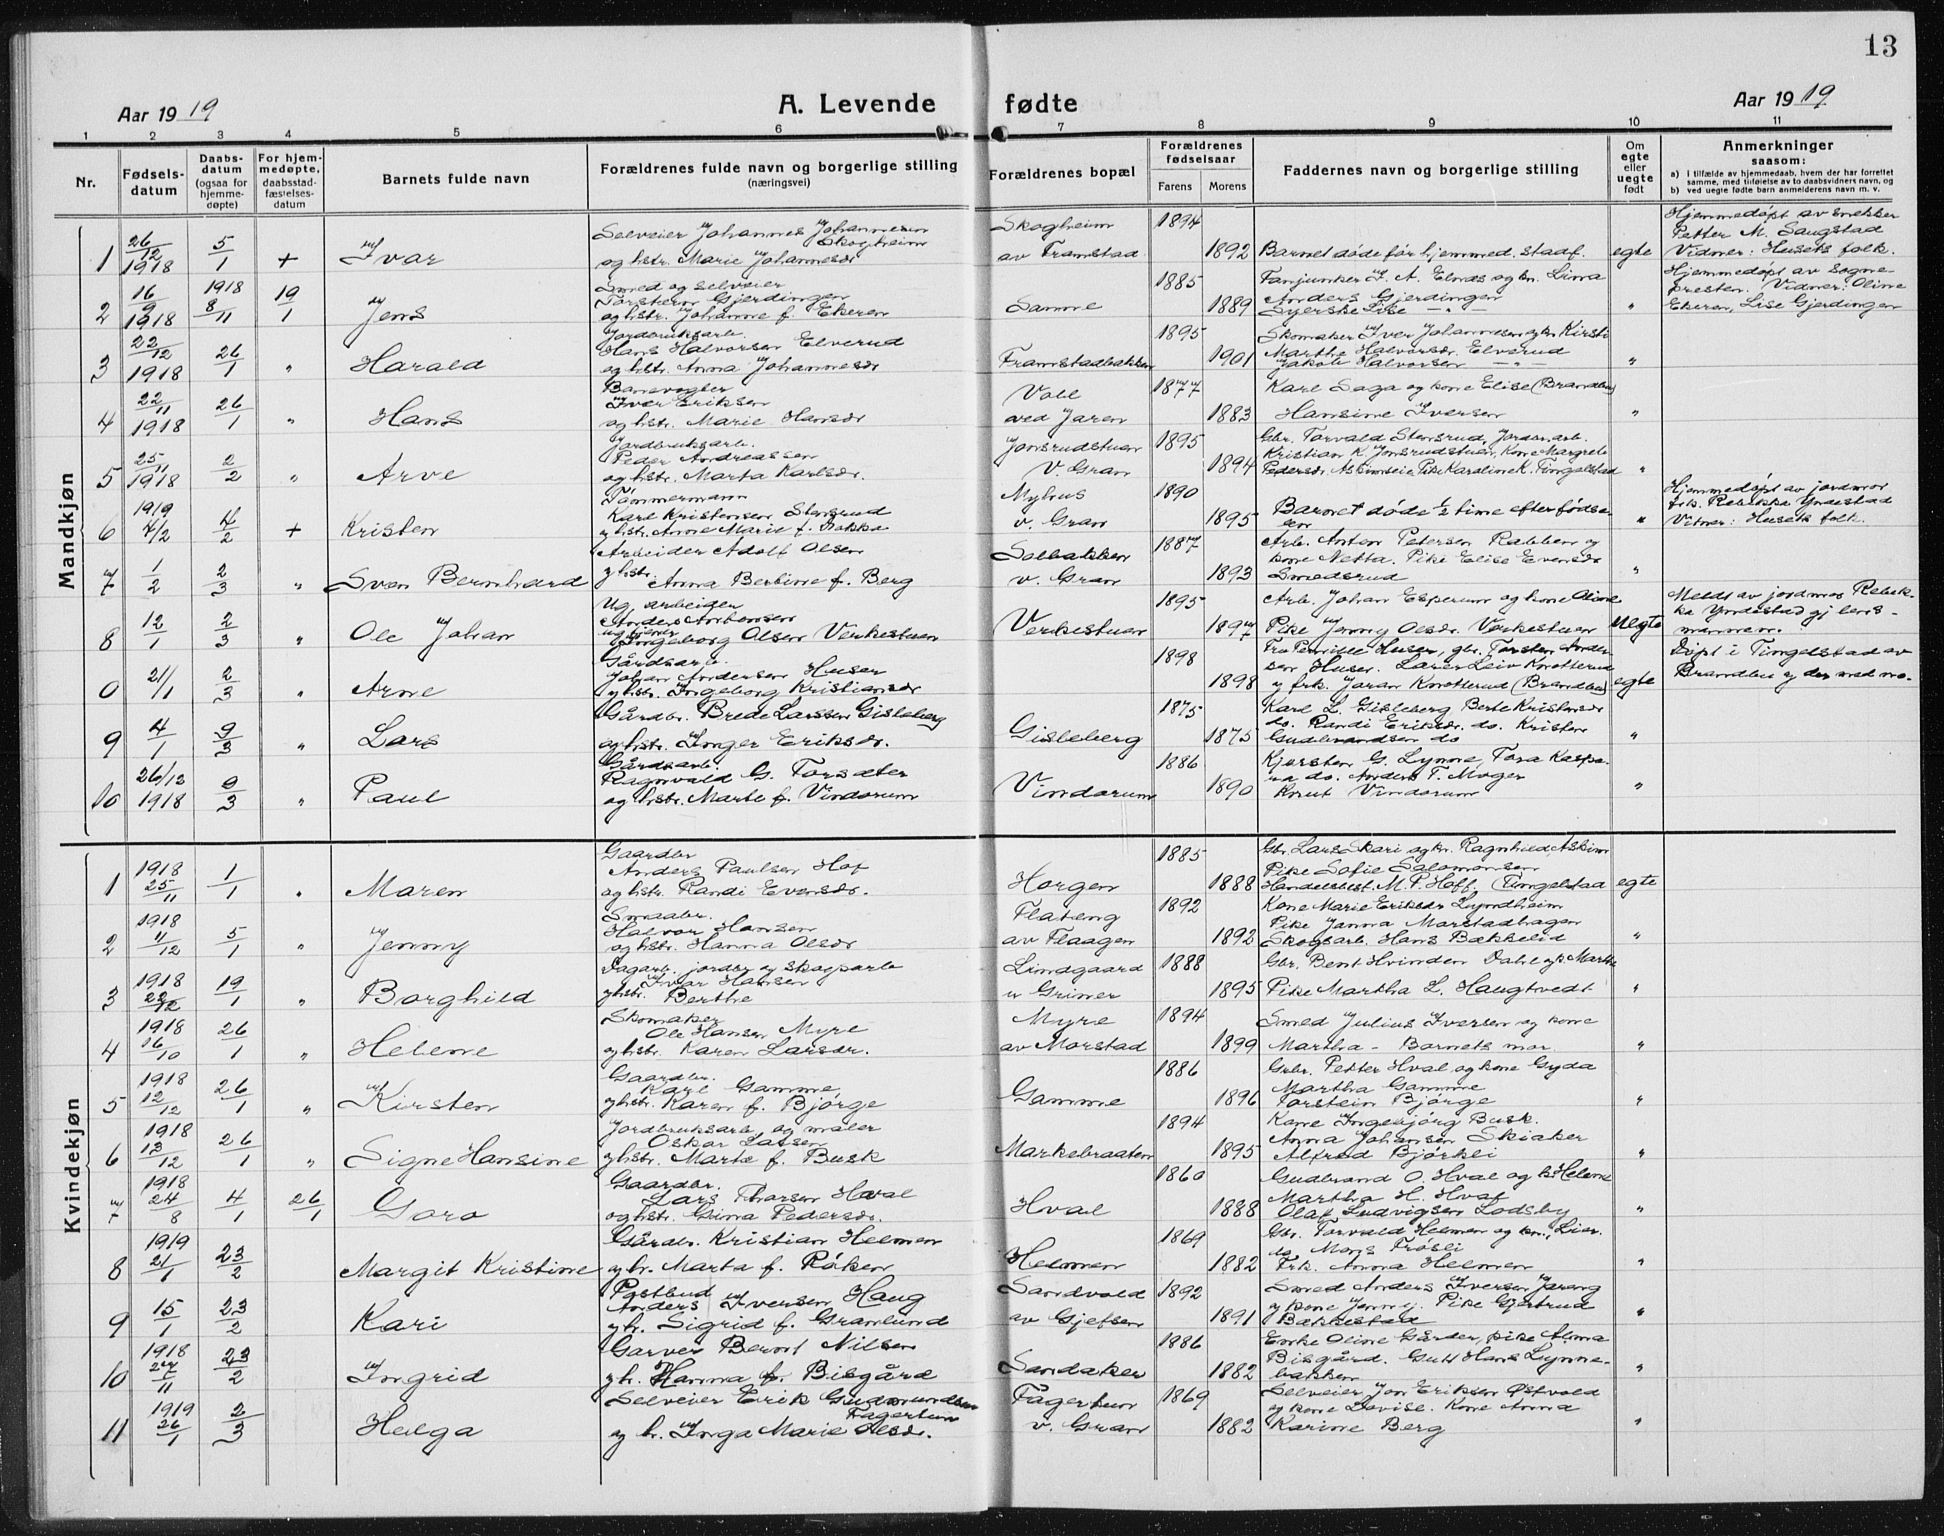 13
Aar 1919
A. Levende fødte
Aar 1919
1 2 3 4 5 6 7 8 9 10 11
Nr.
Fødsels-
datum
Daabs-
datum
(ogsaa for
hjemme-
døpte)
For hjem-
medøpte,
daabsstad-
fæstelses-
datum
Barnets fulde navn
Forældrenes fulde navn og borgerlige stilling
(næringsvei)
Forældrenes bopæl
Forældrenes
fødselsaar
Farens Morens
Faddernes navn og borgerlige stilling
Om
egte
eller
uegte
født
Anmerkninger
saasom:
a) i tilfælde av hjemmedaab, hvem der har forrettet
samme, med tilføielse av to daabsvidners navn, og
b) ved uegte fødte barn anmelderens navn m. v.
Mandkjøn
1 26/12 1918 5/1 + Ivar
Selveier Johannes Johannesen
Skogheim
og hstr. Marie Johannesdr
Skogheim
av Framstad
1894 1892
Barnet døde før hjemmed. stadf. egte
Hjemmedøpt av snekker
Petter M. Saugstad
Vidner: Husets folk.
2 16/9 1918 1918 8/11 19/1 Jens
Smed og selveier
Torstein Gjerdingen
og hstr. Johanne f. Ekeren
Samme
1885 1889
Fanjunker I. A. Elnds og kn. Lina
Anders Gjerdingen
Syerske Lise — " — "
Hjemmedøpt av sogne-
presten. Vidner: Oline
Ekeren, Lise Gjerdingen
3 22/12 1918 26/1 " Harald
Jordbruksarb.
Hans Halvorsen Elverud
og hstr. Anna Johannesdr
Framstadbakken
1895 1901
Skomaker Iver Johannesen og kn Kirsti
Marthe Halvorsdr. Elverud
Jakob Halvorsen — " — "
4 22/11 1918 26/1 " Hans
Banevogter
Iver Eriksen
og hstr. Marie Hansdr
Vold
ved Jaren
1877 1883
Karl Saga og kone Elise (Brandbu)
Hansine Iversen "
5 25/11 1918 2/2 " Arve
Jordbruksarb.
Peder Andreassen
og hstr. Marta Karlsdr.
Jonsrudstuen
v. Gran
1895 1894
Gbr. Torvald Stensrud, Jordbr. arb.
Kristian K. Jonsrudstuen, Kone Margrete
Pedersdr. Askimseie Pike Karoline K. Tingelstad "
6 1919 4/2 4/2 + Kristen
Tømmermann
Karl Kristensen Stensrud
og hstr. Anne Marie f. Dokka
Myhus
v. Gran
1890 1895
Barnet døde ½ time efter fødse-
len "
Hjemmedøpt av jordmor
frk. Rebekka Yndestad
Vidner: Husets folk.
7 1/2 2/3 " Sven Bernhard
Arbeider Adolf Olsen
og hstr. Anna Berbine f. Berg
Solbakken
v. Gran
1887 1893
Arb. Anton Petersen Rabben og
kone Netta. Pike Elise Evensdr
Smedsrud "
8 12/1 2/3 " Ole Johan
Ug. arbeider
Anders Antonsen
ug tjener
Ingeborg Olsen Verkestuen
Verkestuen
1895 1897
Arb. Johan Esperum og kone Oline
Pike Jenny Olesdr. Verkestuen uegte
Meldt av jordmor Rebek-
ka Yndestad gj lens-
mannen.
0 21/1 2/3 " Arne
Gårdsarb.
Johan Andersen Huser
og hstr. Ingeborg Kristiansdr
1898 1898
Fru Pernille Huser, gbr. Torsten Ander-
sen Huser. Lærer Leiv Knotterud
og frk. Joran Knotterud (Brandbu) egte
Døpt i Tingelstad av
Brandbu og der med no.
9 4/1 9/3 " Lars
Gårdbr. Brede Larssen Gisleberg
og hstr. Inger Eriksdr.
Gisleberg
1875 1875
Karl L. Gisleberg Berte Kristensdr
do. Randi Eriksdr. do. Kristen
Gudbrandsen do "
10 26/12 1918 9/3 " Paul
Gårdsarb.
Ragnvald G. Torsæter
og hstr. Marte f. Vindorum
Vindorum
1886 1890
Kjersten G. Lynne, Tora Kaspa-
ra do. Anders T. Moger
Knut Vindorum "
Kvindekjøn
1 1918 25/11 1/1 " Maren
Gaardbr
Anders Paulsen Hof
og hstr. Randi Evensdr.
Horgen
1885 1888
Gbr. Lars Skari og kn. Ragnhild, Askim
Pike Sofie Salomonsen
Handelsbest. M. P. Hoff. (Tingelstad egte
2 1918 11/12 5/1 " Jenny
Smaabr.
Halvor Hansen
og hstr. Hanna Olsdr
Flateng
av Flaagen
1892 1892
Kone Marie Eriksdr Lyndheim
Pike Janna Morstadhagen
Skogsarb. Hans Bækkelid "
3 1918 22/12 19/1 " Borghild
Sagarb. jordbr og skogsarb
Ivar Hansen
og hstr. Berthe
Lindgaard
u Griner
1888 1895
Gbr. Bent Hvinden Dahl og Martha
Pike Martha L. Haugtvedt "
4 1918 16/10 26/1 " Helene
Skomaker
Ole Hansen Myre
og hstr. Karen Larsdr.
Myre
av Morstad
1894 1899
Smed Julius Iversen og kone
Martha – Barnets mor. "
5 1918 12/12 26/1 " Kirsten
Gaardbr.
Karl Gamme
og hstr. Karen f. Bjørge
Gamme
1886 1896
Grbr. Petter Hval og kone Gyda
Martha Gamme
Torstein Bjørge "
6 1918 13/12 26/1 " Signe Hansine
Jordbruksarb. og maler
Oskar Larsen
og hstr. Marte f. Busk
Markebraaten
1894 1895
Kone Ingebjørg Busk.
Anna Johansen Skiaker
Alfred Bjørkli "
7 1918 24/8 4/1 26/1 Goro
Gaardbr.
Lars Thorsen Hval
og hstr. Gina Pedersdr.
Hval
1860 1888
Gudbrand O. Hval og k. Helene
Martha H. Hval
Olaf Ludvigsen Lodsby "
8 1919 21/1 23/2 Margit Kristine
Gårdbr. Kristian Helmen
og h. Marta f. Røken
Helmen
1869 1882
Gbr. Torvald Helmen og kn., Lier.
do Mons Frøsli
Frk. Anna Helmen "
9 15/1 23/2 Kari
Postbud
Anders Iversen Haug
og h. Sigrid f. Granlund
Sandvold
av Gjefsen
1892 1891
Smed Anders Iversen Jareng
og kone Jenny. Pike Gjertrud
Bakkestad "
10 1918 27/11 23/2 Ingrid
Garver Bernt Nilsen
og h. Hanna f. Bilgård
Sandaker
1886 1882
Enke Oline Gårder, pike Alma
Bisgård. Gutt Hans Lynne-
bakken "
11 1919 26/1 2/3 Helga
Selveier Erik Gudmundsen
Fagertun
og h. Inga Marie Olsdr.
Fagertun
v. Gran
1869 1882
Selveier Jon Eriksen Østvold
og kone Lovise. Kone Anna
Karine Berg "